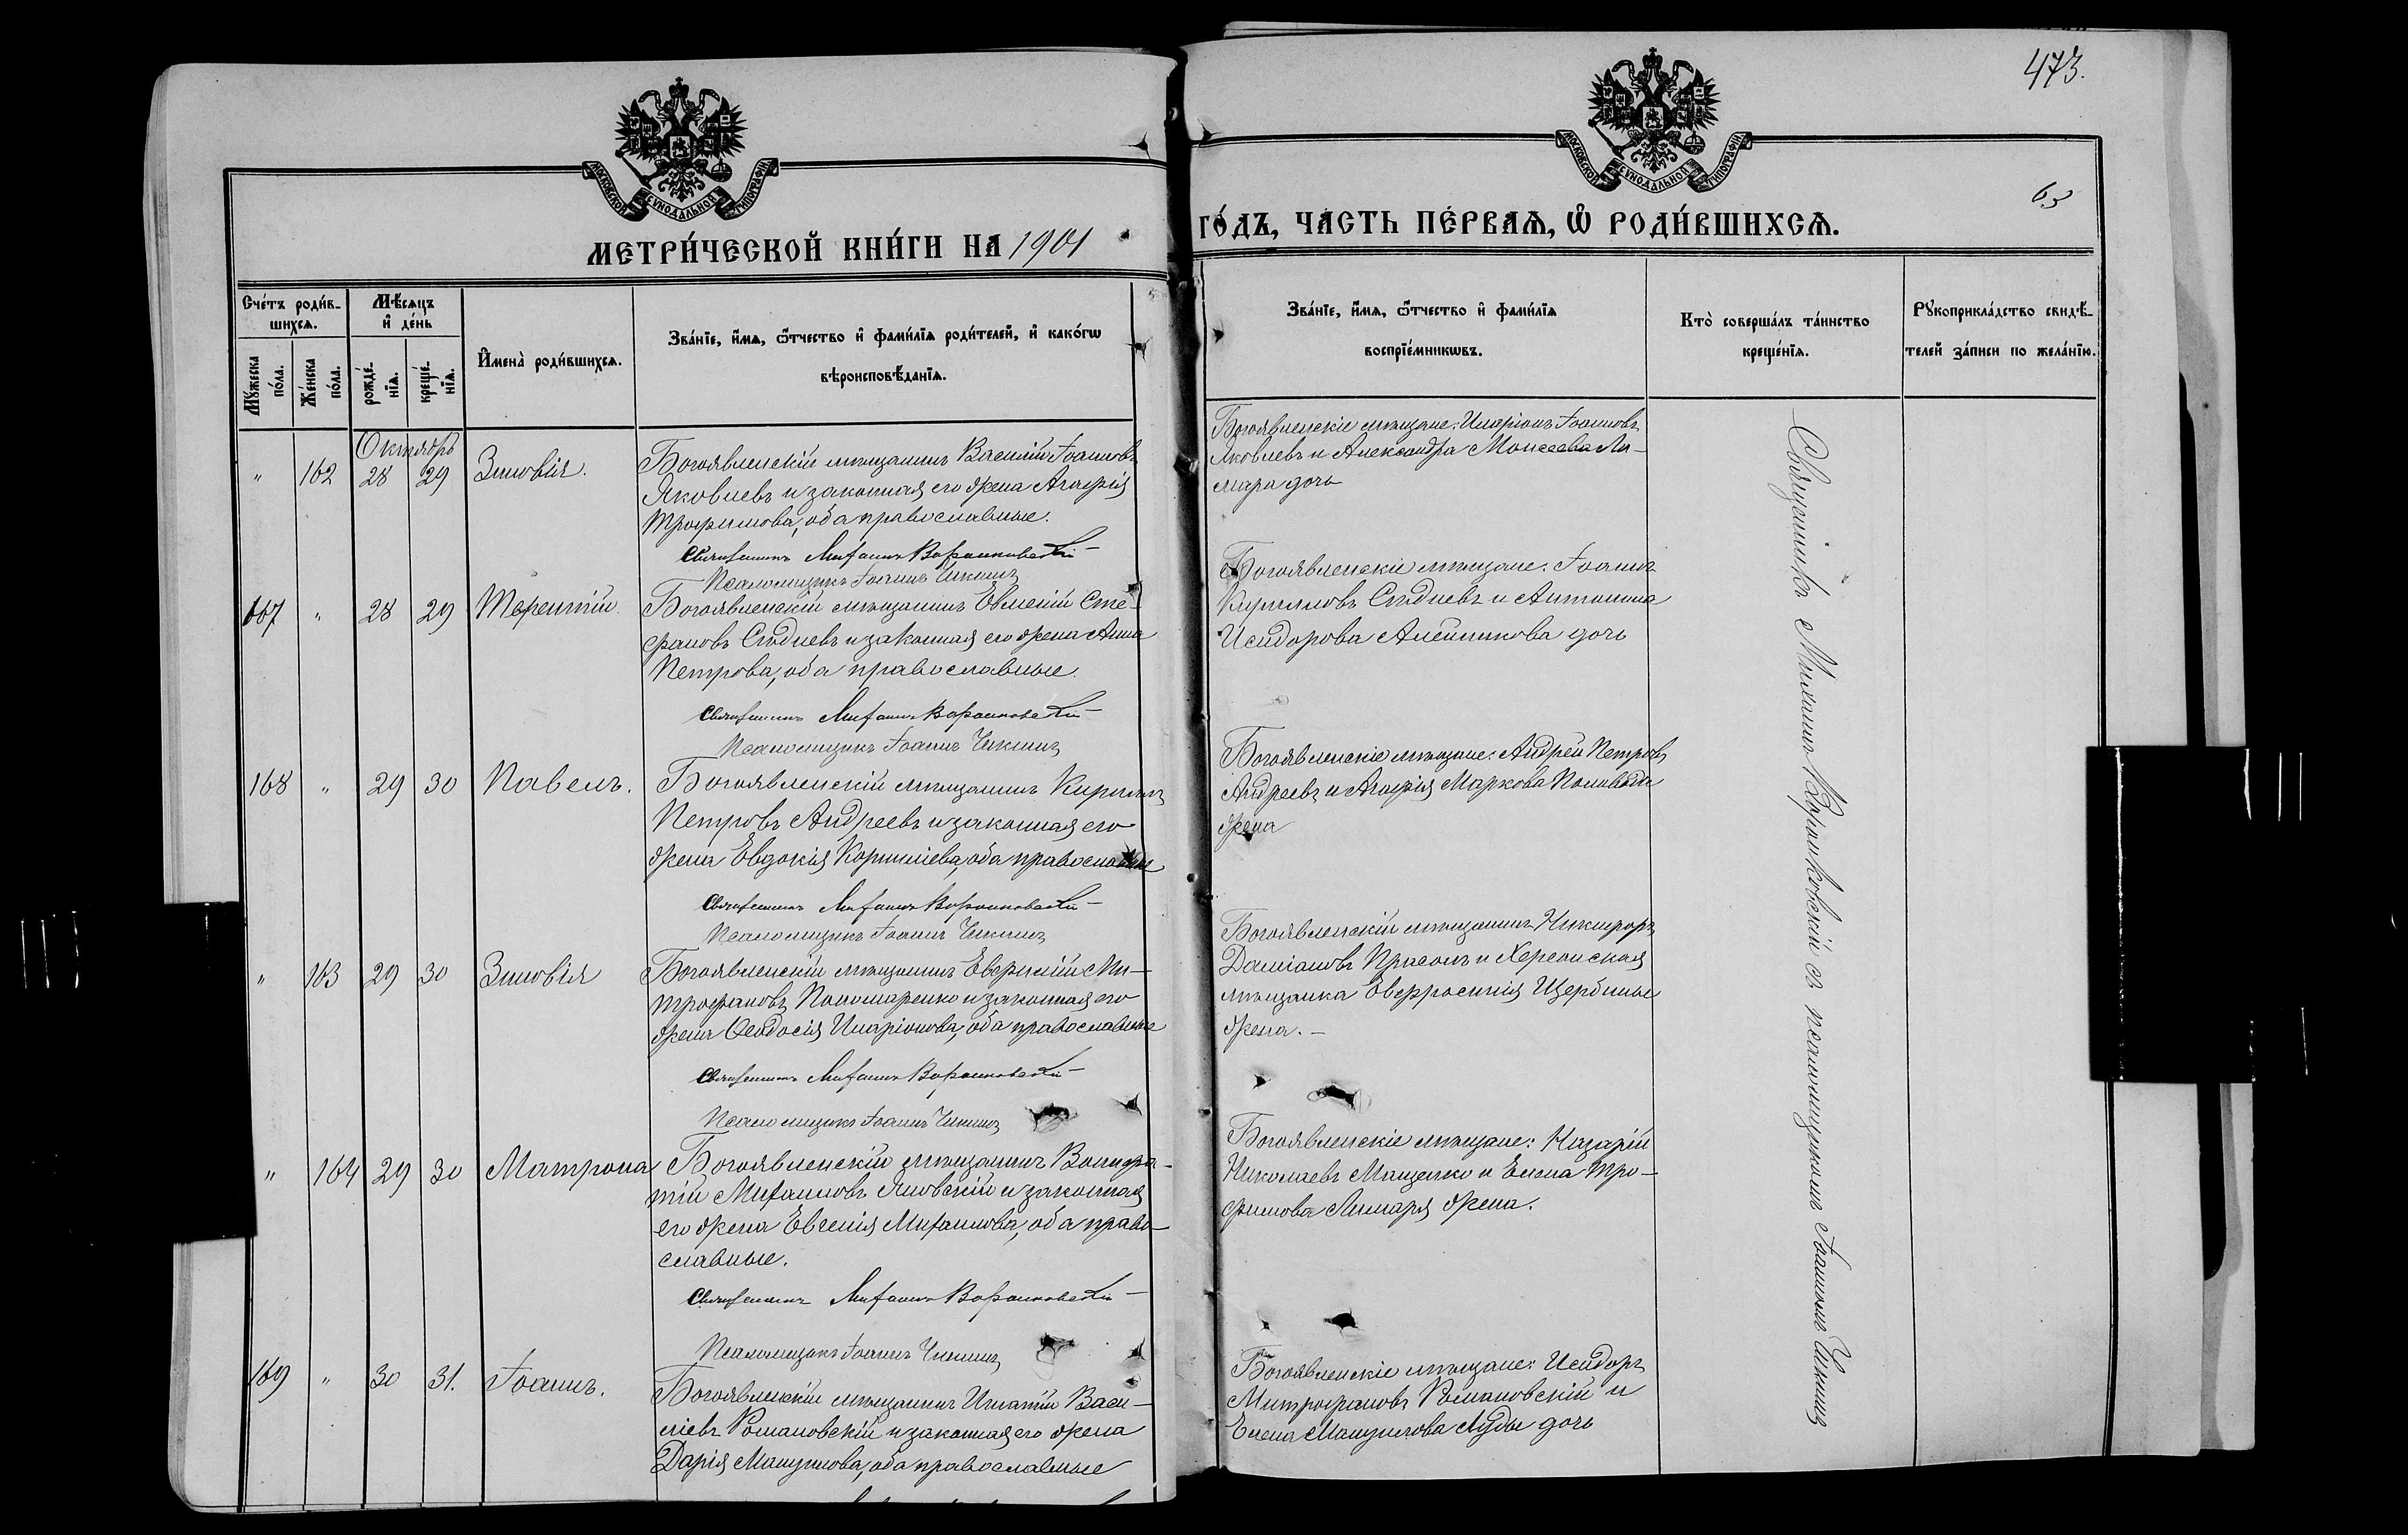 473.
63
МОСКОВСКОЙ СѴНОДАЛЬНОЙ ТИПОГРАФІИ
МОСКОВСКОЙ СѴНОДАЛЬНОЙ ТИПОГРАФІИ
МЕТРИ́ЧЕСКОЙ КНИ́ГИ НА 1901
ГО́ДЪ, ЧА́СТЬ ПЕ́РВАѦ, Ѡ҆ РОДИ́ВШИХСѦ.
Сче́тъ роди́в-
шихсѧ.
Мꙋ́жеска
по́ла.
Же́нска
по́ла.
Мѣ́сѧцъ
и҆ де́нь
рожде́-
нїѧ.
креще́-
нїѧ.
И҆мена̀ роди́вшихсѧ.
Зва́нїе, и҆́мѧ, ѻ҆́тчество и҆ фами́лїѧ роди́телей, и҆ како́гѡ
вѣроисповѣ́данїѧ.
Зва́нїе, и҆́мѧ, ѻ҆́тчество и҆ фами́лїѧ
воспрїе́мникѡвъ.
Кто̀ соверша́лъ та́инство
креще́нїѧ.
Рꙋкоприкла́дство свидѣ́-
телей за́писи по жела́нїю.
Октябрь
" 162 28 29 Зиновія.
Богоявленскій мѣщанинъ Василій Іоанновъ
Яковлевъ и законная его жена Агафія
Трофимова, оба православные.
Священникъ Михаилъ Воронковскій
Псаломщикъ Іоаннъ Чикинъ
Богоявленскіе мѣщане: Иларіонъ Іоанновъ
Яковлевъ и Александра Моисеева Ли-
маря дочь
167 " 28 29 Терентій.
Богоявленскій мѣщанинъ Евмений Сте-
фановъ Слѣдневъ и законная его жена Анна
Петрова, оба православные.
Священникъ Михаилъ Воронковскій
Псаломщикъ Іоаннъ Чикинъ
Богоявленскіе мѣщане: Іоаннъ
Кирилловъ Слѣдневъ и Антонина
Исидорова Алейникова дочь
168 " 29 30 Павелъ.
Богоявленскій мѣщанинъ Кириллъ
Петровъ Андреевъ и законная его
жена Евдокія Корнилiева, оба православные
Священникъ Михаилъ Воронковскій
Псаломщикъ Іоаннъ Чикинъ
Богоявленскіе мѣщане: Андрей Петровъ
Андреевъ и Агафія Маркова
жена
" 163 29 30 Зиновія
Богоявленскій мѣщанинъ Евфимій Ми-
трофановъ Пономаренко и законная его
жена Ѳеодосія Иларіонова, оба православные
Священникъ Михаилъ Воронковскій
Псаломщикъ Іоаннъ Чикинъ
Богоявленскій мѣщанинъ Никифоръ
Даміановъ Прасолъ и Херсонская
мѣщанка Евфросинія Щербины
жена. –
" 164 29 30 Матрона
Богоявленскій мѣщанинъ Вонифа-
тій Михаиловъ Яновскій и законная
его жена Евгенія Михаилова, оба право-
славные.
Священникъ Михаилъ Воронковскій
Псаломщикъ Іоаннъ Чикинъ
Богоявленскіе мѣщане: Назарій
Николаевъ Мащенко и Елена Тро-
фимова Лимаря жена.
169 " 30 31. Іоаннъ.
Богоявленскій мѣщанинъ Игнатій Васи-
ліевъ Романовскій и законная его жена
Дарія Мануилова, оба православные
Богоявленскіе мѣщане: Исидоръ
Митрофановъ Романовскій и
Елена Мануилова Луды дочь
Священникъ Михаилъ Воронковскій съ псаломщикомъ Іоанномъ Чикинъ